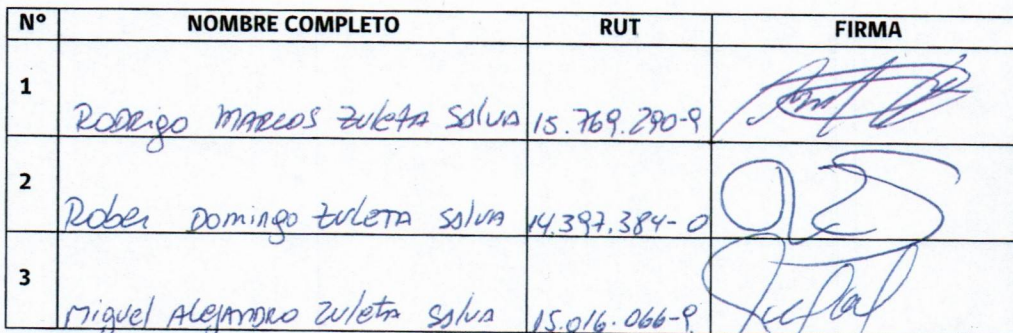 Nº NOMBRE COMPLETO RUT FIRMA
1 Rodrigo Marcos Zuleta Salva 15.769.290-9
2 Rober Domingo Zuleta Salva 14.397.384-0
3 Miguel Alejandro Zuleta Salva 15.016.066-9